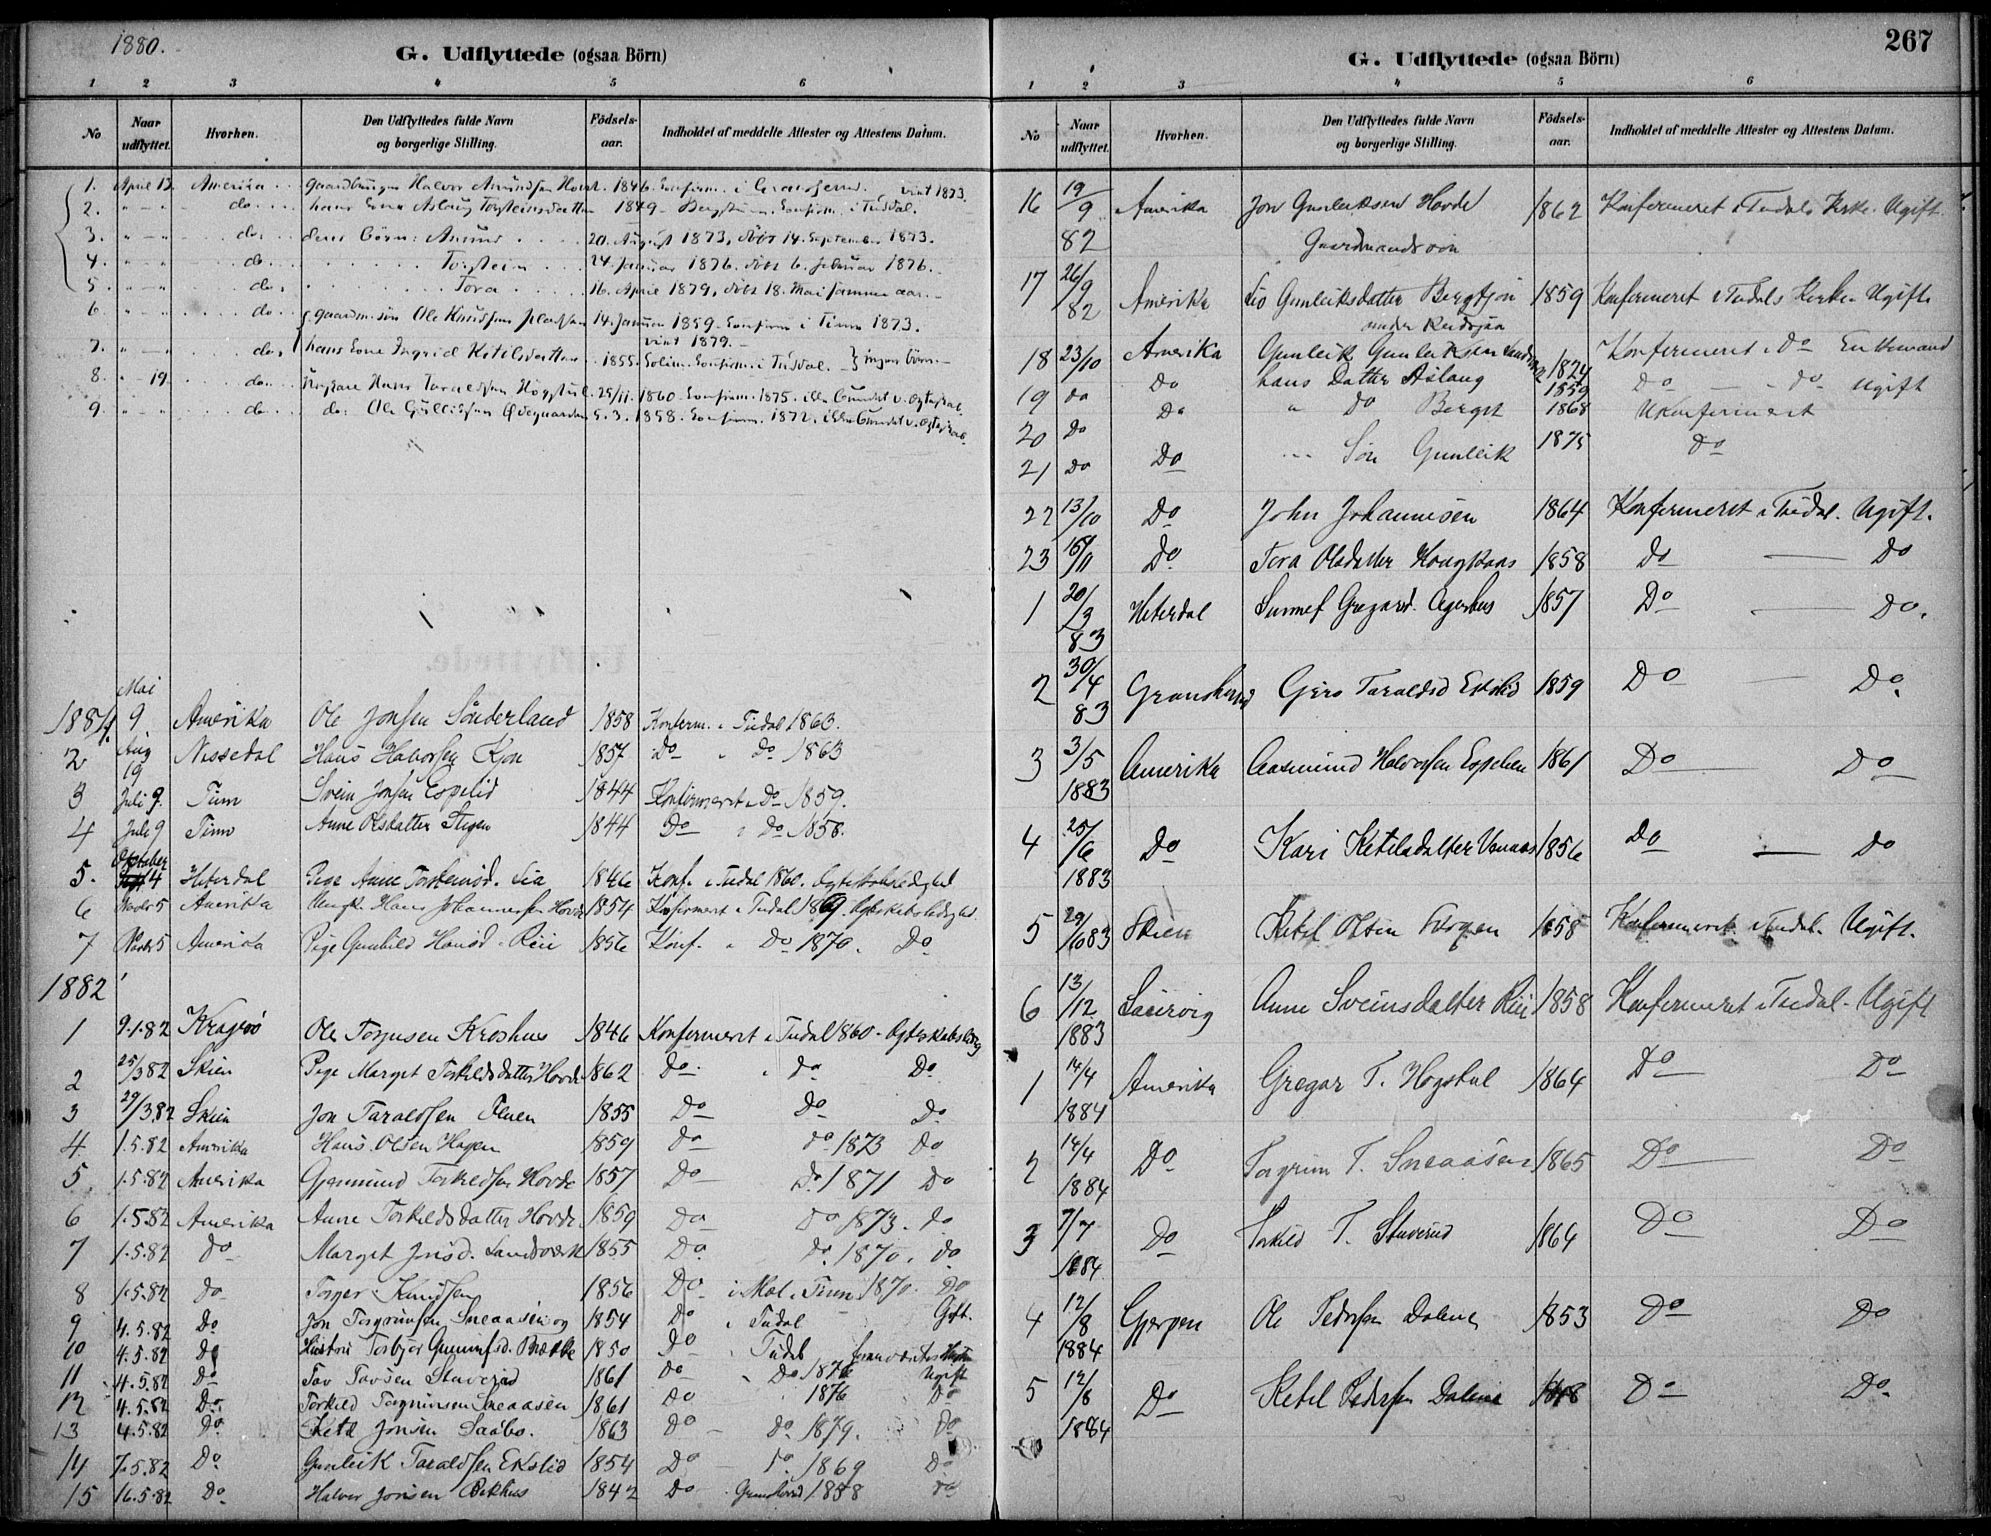 1880.
G. Udflyttede (ogsaa Börn)
1 2 3 4 5 6
No Naar udflyttet. Hvorhen. Den Udflyttedes fulde Navn og borgerlige Stilling. Födsels-aar. Indholdet af meddelte Attester og Attestens Datum.
1. April 13. Amerika Halvor Amundsen 1846. Confirm. i viet 1873.
2. " - " do. hans Kone Aslaug Torsteinsdatter 1849 Confirm. i Tudal.
3. " - " do. deres Börn: Amund 20. August 1873, döbt 14. September 1873.
4. " - " do. Torstein 24. Januar 1876. döbt 6. februar 1876.
5. " - " do. Tora 16. April 1879, döbt 18. Mai samme aar.
6. " - " do. gaardm. sön Ole Knudsen 14. Januar 1859. Confirm i Tinn 1873.
viet 1879.
7. " - " do. hans Kone Ingrid Ketilsdatter 1855. Confirm. i Tudal. } ingen börn.
8. " - 19 do. Ungkarl Hans Taraldsen Högstul 25/11. 1860. Confirm. 1875.
9. " " do. do. Ole 5. 3. 1858. Confirm. 1872.
1881. Mai 9 Amerika Ole Jonsen Sönderland 1858 Konferm. i Tudal 1863.
2 Aug 19 Nissedal Hans Halvorsen Kjon 1857 do " do 1863
3 Juli 9. Tinn Svein Jonsen Espelid 1844 Konfirmeret i Do 1859.
4 Juli 9 Tinn Anne Olsdatter Stigen 1844 Do i Do 1858.
5. Oktober 14 Hiterdal Pige Anne Lia 1846 Konf. i Tudal 1860.
6 Novbr 5 Amerika Ungk. Hans Johannessen Hovde 1854 Konfirmeret i Tudal 1869
7 5 Amerika Pige Gunhild Hansd. Rui 1856 Konf. " Do 1870. Do
1882
1 9.1.82 Kragerö Ole Torjusen Kroshus 1846 Konfirmeret i Tudal 1860
2 25/3 82 Skien Pige Marget Torkildsdatter Hovde 1862 Do " do Do
3 29/3.82 Skien Jon Taraldsen 1855 Do Do Do
4 1.5.82 Amerika Hans Olsen Hagen 1859 do do 1873 do
5 1.5.82 Amerika Gjermund Torkildsen Hovde 1857 Do Do 1871 Do
6 1.5.82 Amerika Anne Torkildsdatter Hovde 1859 Do Do 1873. do
7 1.5.82 do Marget Jonsd. Landsverk 1855 Do do 1870. do
8 1.5.82 do Torger Knudsen 1856 Do i Mæl i Tinn 1870. Do
9 4.5.82 Do Jon Torgrimsen Sneaasen og 1854 Do i Tudal Gift.
10 4.5.82 Do Hustru Torbjör 1850 Do " Tudal
11 4.5.82 Do Tov Tovsen Stuverud 1861 Do " Do 1876 Ugift
12 4.5.82 Do Torkild Torgrimsen Sneaasen 1861 do 1876 Do
13 4.5.82 Do Ketil Jonsen Saabo. 1863 Do Do 1879. Do
14 7.5.82 Do Gunleik Taraldsen Ekslid 1854 Do do 1869 Do
15 16.5.82 Do Halvor Jonsen Bekhus 1842 Do Gransherred 1858 do
G. Udflyttede (ogsaa Börn)
267
1 2 3 4 5 6
No Naar udflyttet. Hvorhen. Den Udflyttedes fulde Navn og borgerlige Stilling. Födsels-aar. Indholdet af meddelte Attester og Attestens Datum.
16 19/9 82 Amerika Jon Gunleiksen Hovde 1862 Konfermeret i Tudals Kirke. Ugift
Gaardmandssön
17 26/9 82 Amerika Lio Gunleiksdatter Bergtjon 1859 Konfermeret i Tudals Kirke. Ugift
18 23/10 Amerika Gunleik Gunleiksen 1824 Konfermeret i Do Enkemand
19 do Do hans Datter Aslaug 1859 Do - do Ugift
20 Do Do " Do Berget 1868 Ukonfermeret
21 do Do " Sön Gunleik 1875 Do
22 13/10 Do John Johannesen 1864 Konfermeret i Tudal. Ugift.
23 15/11 Do Tora Olsdatter Kongkaas 1858 do Do
1 20/3 83 Hiterdal Sunnef Gregard. 1857 Do Do.
2 30/4 83 Gransherred Giro Taraldsd Ekslid 1859 Do Do
3 3/5 1883 Amerika Aasmund Halvorsen 1861 Do Do
4 25/6 1883 Do Kari Ketilsdatter 1856 Do Do
5 29/10 83 Skien Ketil Olsen 1858 Konfermeret i Tudal. Ugift.
6 13/12 1883 Laurvig Anne Sveinsdatter Rui 1858 Konfermeret i Tudal. Ugift
1 14/4 1884 Amerika Gregar T. Hogstul 1864 Do Do
2 14/4 1884 Do Torgrim T. Sneaasen 1865 Do Do
3 7/7 1884 Do Torkild T. Stuverud 1864 Do Do
4 12/8 1884 Gjerpen Ole Pedersen Dalene 1853 Do Do
5 12/8 1884 Do Ketil Pedersen Dalene Do Do